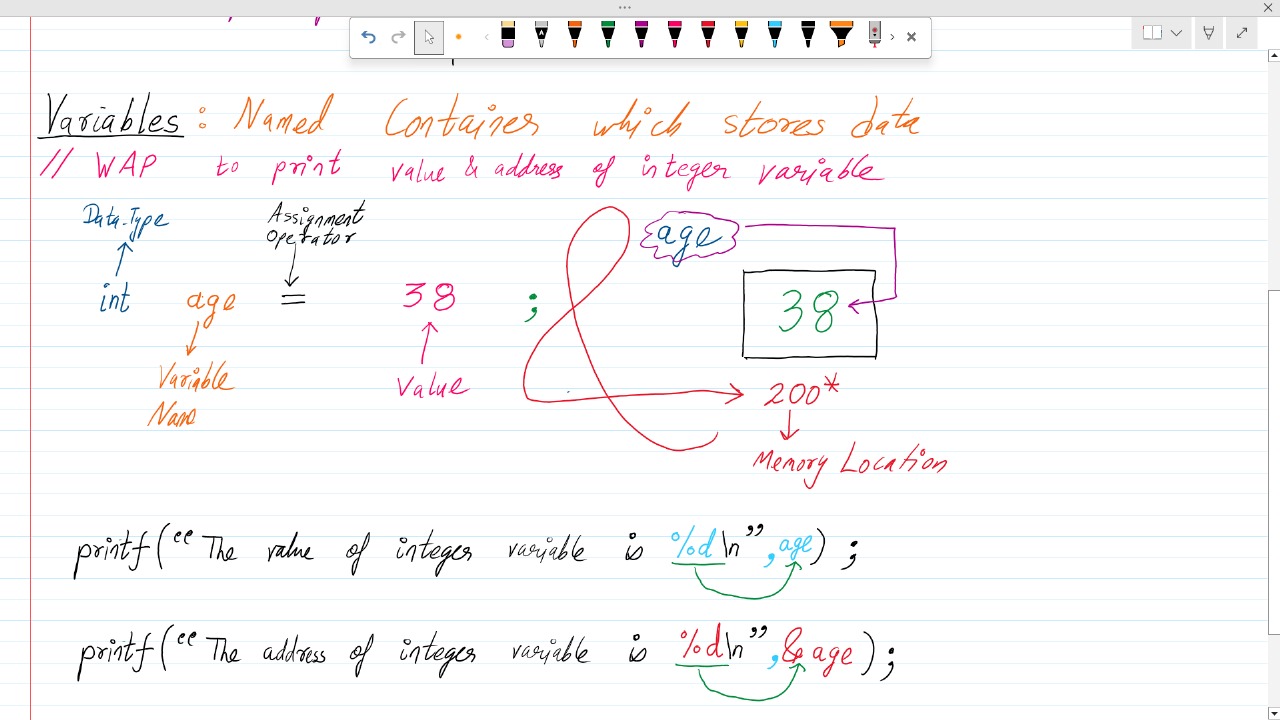 Variables : Named Container which stores data
// WAP to print value & address of integer variable
Data-Type
Assignment
Operator
age
int age = 38 ;
38
Variable
Name
Value
200*
Memory Location
printf("The value of integer variable is %d\n",age);
printf("The address of integer variable is %d\n",&age);